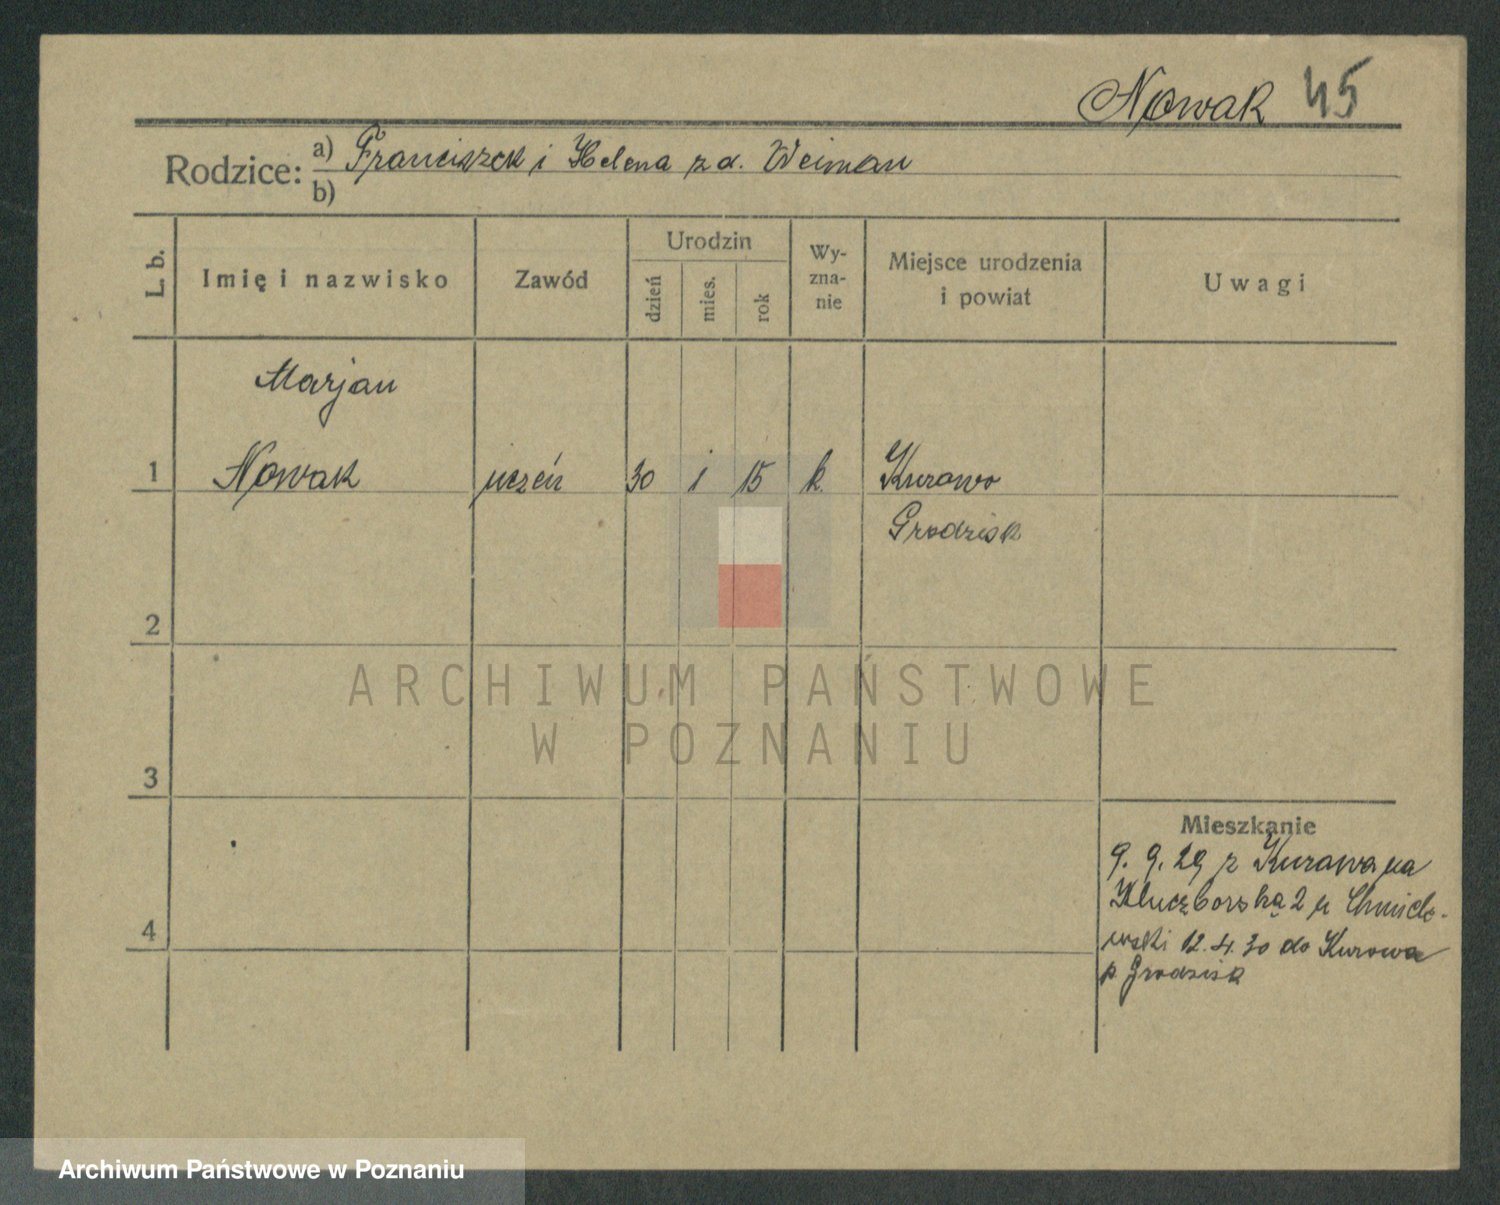 Nowak 45
Rodzice: a) Franciszek i Helena z d. Weiman
b)
L. b.
Imię i nazwisko
Zawód
Urodzin
dzień
mies.
rok
Wy-
zna-
nie
Miejsce urodzenia
i powiat
Uwagi
Marjan
1 Nowak uczeń 30 1 15 k. Kurowo
Grodzisk
2
ARCHIWUM PAŃSTWOWE
W POZNANIU
3
Mieszkanie
9. 9. 29 z Kurowa na
Kluczborską 2 u Chmiele-
wski 12. 4. 30 do Kurowa
p. Grodzisk
4
Archiwum Państwowe w Poznaniu